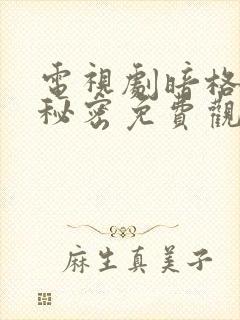 電視劇暗格
秘密免費觀
麻生真美子